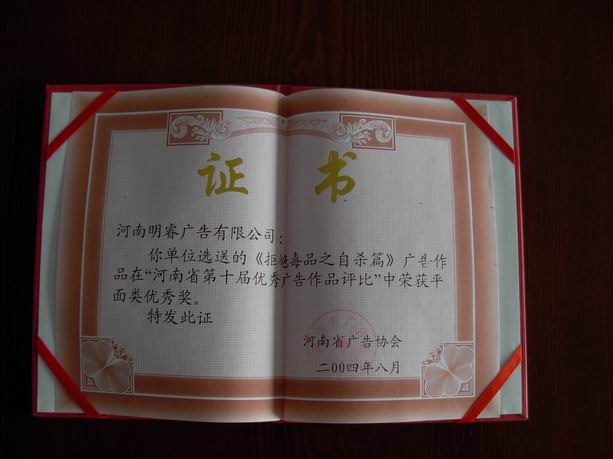 证书
河南明睿广告有限公司：
你单位选送的《拒绝毒品之自杀篇》广告作
品在“河南省第十届优秀广告作品评比”中荣获平
面类优秀奖。
特发此证
河南省广告协会
二00四年八月